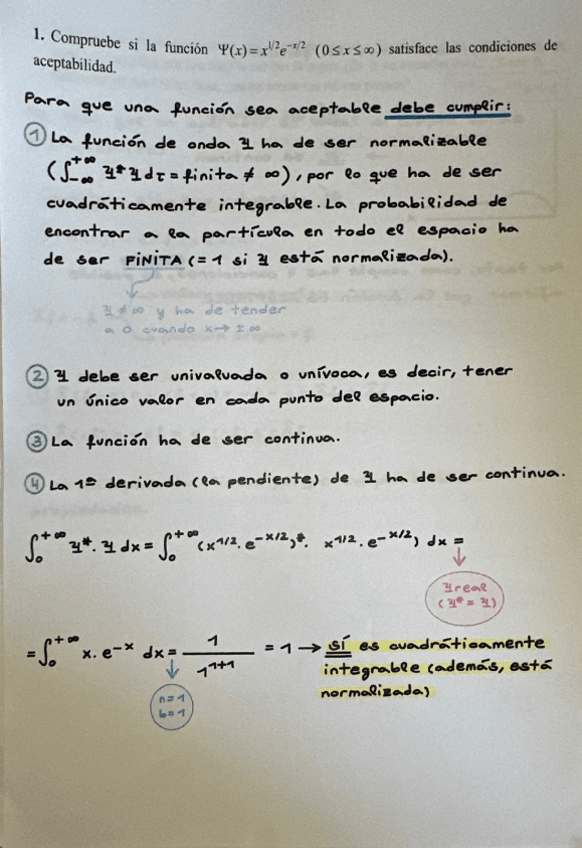 1. Compruebe si la función Ψ(x)=x^{1/2}e^{-x/2} (0≤x≤∞) satisface las condiciones de
aceptabilidad.
Para que una función sea aceptable debe cumplir:
① La función de onda Ψ ha de ser normalizable
(∫_{-∞}^{+∞} Ψ* Ψ dτ = finita ≠ ∞), por lo que ha de ser
cuadráticamente integrable. La probabilidad de
encontrar a la partícula en todo el espacio ha
de ser FINITA (= 1 si Ψ está normalizada).
Ψ ≠ ∞ y ha de tender
a 0 cuando x → ± ∞
② Ψ debe ser univaluada o unívoca, es decir, tener
un único valor en cada punto del espacio.
③ La función ha de ser continua.
④ La 1ª derivada (la pendiente) de Ψ ha de ser continua.
∫_0^{+∞} Ψ* · Ψ dx = ∫_0^{+∞} (x^{1/2} · e^{-x/2})* · x^{1/2} · e^{-x/2}) dx =
Ψ real
(Ψ* = Ψ)
= ∫_0^{+∞} x · e^{-x} dx = 1 / 1^{1+1} = 1 → SÍ es cuadráticamente
integrable (además, está
normalizada)
n = 1
b = 1